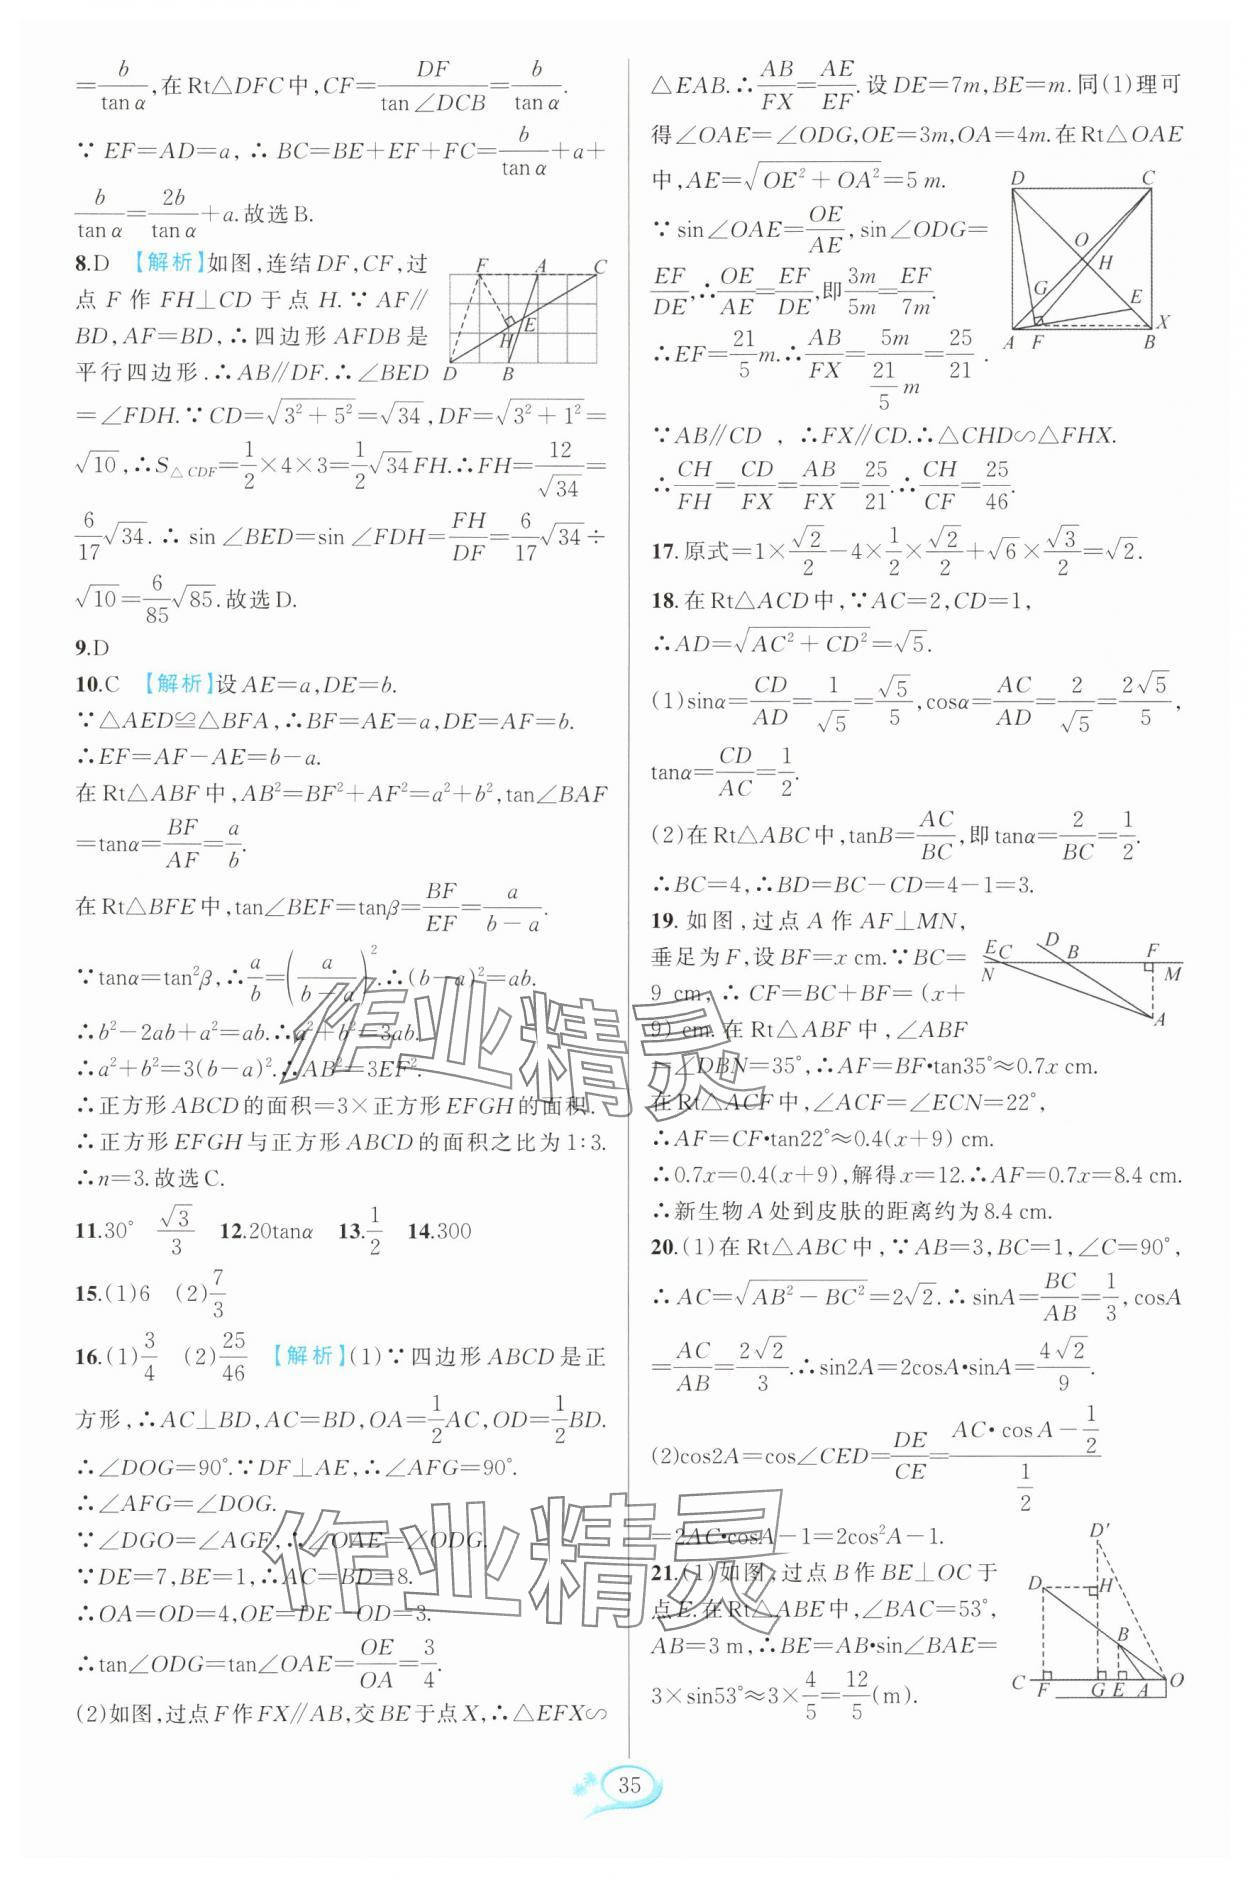 =b/tanα,在Rt△DFC中,CF=DF/tan∠DCB=b/tanα.
∵EF=AD=a,∴BC=BE+EF+FC=b/tanα+a+
b/tanα=2b/tanα+a.故选B.
8.D 【解析】如图,连结DF,CF,过
点F作FH⊥CD于点H.∵AF∥
BD,AF=BD,∴四边形AFDB是
平行四边形.∴AB∥DF.∴∠BED
=∠FDH.∵CD=√(3²+5²)=√34,DF=√(3²+1²)=
√10,∴S△CDF=1/2×4×3=1/2√34FH.∴FH=12/√34=
6/17√34.∴sin∠BED=sin∠FDH=FH/DF=6/17√34÷
√10=6/85√85.故选D.
9.D
10.C 【解析】设AE=a,DE=b.
∵△AED≌△BFA,∴BF=AE=a,DE=AF=b.
∴EF=AF-AE=b-a.
在Rt△ABF中,AB²=BF²+AF²=a²+b²,tan∠BAF
=tanα=BF/AF=a/b.
在Rt△BFE中,tan∠BEF=tanβ=BF/EF=a/(b-a).
∵tanα=tan²β,∴a/b=(a/(b-a))².∴(b-a)²=ab.
∴b²-2ab+a²=ab.∴a²+b²=3ab.
∴a²+b²=3(b-a)².∴AB²=3EF².
∴正方形ABCD的面积=3×正方形EFGH的面积.
∴正方形EFGH与正方形ABCD的面积之比为1:3.
∴n=3.故选C.
11.30° √3/3 12.20tanα 13.1/2 14.300
15.(1)6 (2)7/3
16.(1)3/4 (2)25/46 【解析】(1)∵四边形ABCD是正
方形,∴AC⊥BD,AC=BD,OA=1/2AC,OD=1/2BD.
∴∠DOG=90°.∵DF⊥AE,∴∠AFG=90°.
∴∠AFG=∠DOG.
∵∠DGO=∠AGF,∴∠OAE=∠ODG.
∵DE=7,BE=1,∴AC=BD=8.
∴OA=OD=4,OE=DE-OD=3.
∴tan∠ODG=tan∠OAE=OE/OA=3/4.
(2)如图,过点F作FX∥AB,交BE于点X,∴△EFX∽
△EAB.∴AB/FX=AE/EF.设DE=7m,BE=m.同(1)理可
得∠OAE=∠ODG,OE=3m,OA=4m.在Rt△OAE
中,AE=√(OE²+OA²)=5m.
∵sin∠OAE=OE/AE,sin∠ODG=
EF/DE,∴OE/AE=EF/DE,即3m/5m=EF/7m.
∴EF=21/5m.∴AB/FX=5m/(21/5 m)=25/21.
∵AB∥CD,∴FX∥CD.∴△CHD∽△FHX.
∴CH/FH=CD/FX=AB/FX=25/21.∴CH/CF=25/46.
17.原式=1×√2/2-4×1/2×√2/2+√6×√3/2=√2.
18.在Rt△ACD中,∵AC=2,CD=1,
∴AD=√(AC²+CD²)=√5.
(1)sinα=CD/AD=1/√5=√5/5,cosα=AC/AD=2/√5=2√5/5,
tanα=CD/AC=1/2.
(2)在Rt△ABC中,tanB=AC/BC,即tanα=2/BC=1/2.
∴BC=4,∴BD=BC-CD=4-1=3.
19.如图,过点A作AF⊥MN,
垂足为F,设BF=x cm.∵BC=
9 cm,∴CF=BC+BF=(x+
9) cm.在Rt△ABF中,∠ABF
=∠DBN=35°,∴AF=BF•tan35°≈0.7x cm.
在Rt△ACF中,∠ACF=∠ECN=22°,
∴AF=CF•tan22°≈0.4(x+9) cm.
∴0.7x=0.4(x+9),解得x=12.∴AF=0.7x=8.4 cm.
∴新生物A处到皮肤的距离约为8.4 cm.
20.(1)在Rt△ABC中,∵AB=3,BC=1,∠C=90°,
∴AC=√(AB²-BC²)=2√2.∴sinA=BC/AB=1/3,cosA
=AC/AB=2√2/3.∴sin2A=2cosA•sinA=4√2/9.
(2)cos2A=cos∠CED=DE/CE=(AC•cosA-1/2)/(1/2)
=2AC•cosA-1=2cos²A-1.
21.(1)如图,过点B作BE⊥OC于
点E.在Rt△ABE中,∠BAC=53°,
AB=3 m,∴BE=AB•sin∠BAE=
3×sin53°≈3×4/5=12/5(m).
F A C
E
H
D B
D C
O
H
G E
A F B X
E C D B F
N M
A
D'
D H
B
C F G E A O
作业精灵
作业精灵
35